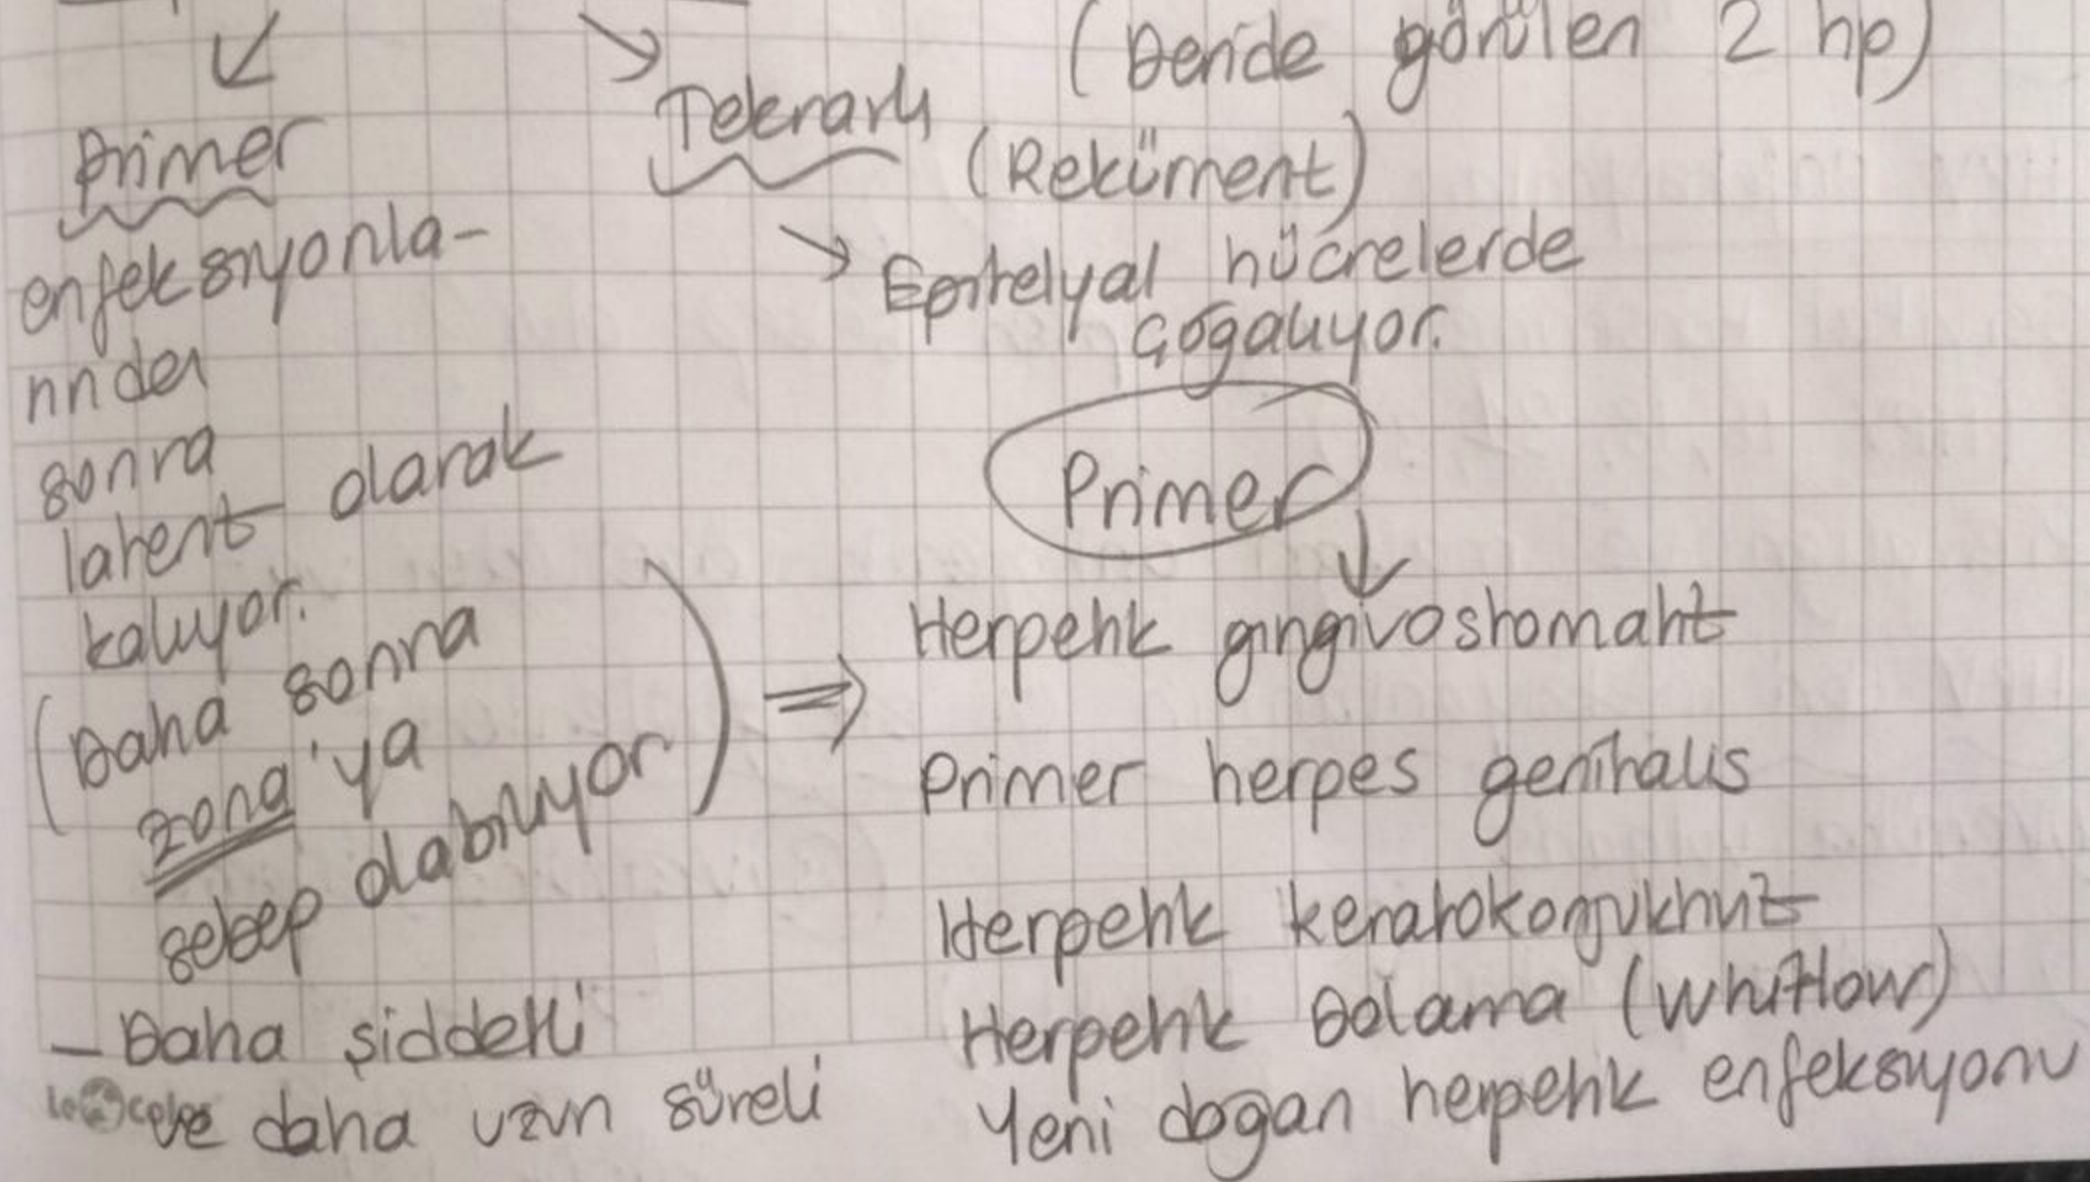 (Deride görülen 2 tip)
Primer
enfeksiyonla-
rından
sonra
latent olarak
kalıyor.
(Daha sonra
zona'ya
sebep olabiliyor)
- Daha şiddetli
ve daha uzun süreli
Tekrarlı
(Rekürrent)
→ Epitelyal hücrelerde
çoğalıyor.
Primer
⇒ Herpetik gingivostomatit
Primer herpes genitalis
Herpetik keratokonjuktivit
Herpetik Dolama (Whitlow)
Yeni doğan herpetik enfeksiyonu